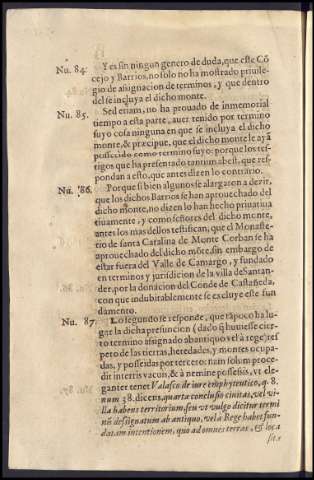 Nu. 84. Y es sin ningun genero de duda, que este Cõ
cejo y Barrios, no solo no ha mostrado priuile-
gio de asignacion de terminos, y que dentro
del se incluya el dicho monte.
Nu. 85. Sed etiam, no ha prouado de inmemorial
tiempo a esta parte, auer tenido por termino
suyo cosa ninguna en que se incluya el dicho
monte, & præcipue, que el dicho monte le ayã
posseido como termino suyo: porque los tes-
tigos que ha presentado tantum abest, que res-
pondan a esto, que antes dizen lo contrario.
Nu. 86. Porque si bien algunos se alargaron a dezir,
que los dichos Barrios se han aprouechado del
dicho monte, no dizen lo han hecho priuatiua
tiuamente, y como señores del dicho monte,
antes los mas dellos testifican, que el Monaste-
rio de santa Catalina de Monte Corban se ha
aprouechado del dicho mõte, sin embargo de
estar fuera del Valle de Camargo, y fundado
en terminos y jurisdicion de la villa de Santan-
der, por la donacion del Conde de Castañeda,
con que indubitablemente se excluye este fun
damento.
Nu. 87. Lo segundo se responde, que tãpoco ha lu-
gar la dicha presuncion (dado q̃ huuiesse cier-
to termino asignado ab antiquo vel à rege) res-
peto de las tierras, heredades, y montes ocupa-
das, y posseidas por tercero: nam solum proce-
dit inter vacuis, & à nemine possessis, vt ele-
ganter tenet Valasco de iure emphyteutico, q. 8.
num 38. dicens, quarta conclusio ciuitas, vel vi-
lla habens territorium, seu vt vulgo dicitur termi
nũ designatum ab antiquo, vel à Rege habet fun-
datam intentionem, quo ad omnes terras, & loca
sita